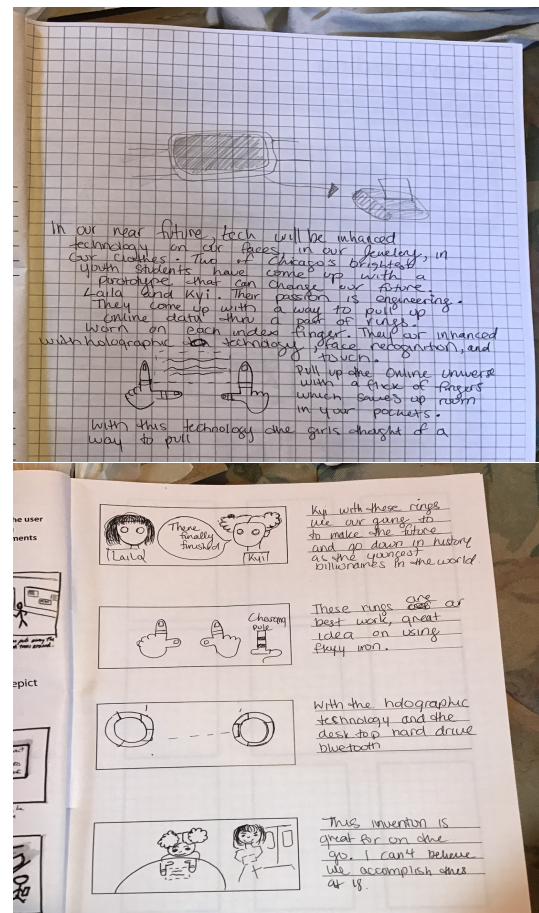 In our near future, tech will be inhanced
technology on our faces, in our jewelery, in
our clothes. Two of Chicago's brightest
youth students have come up with a
prototype that can change our future.
Laila and Kyi. Their passion is engineering.
They come up with a way to pull up
online data thru a pair of rings.
Worn on each index finger. They air inhanced
with holographic technology, face recognition, and
touch.
Pull up the Online universe
with a flick of fingers
which saves up room
in your pockets.
With this technology the girls thought of a
way to pull
he user
ments
epict
There
finally
finished
Laila
Kyi
Kyi with these rings
we our going to
to make the future
and go down in history
as the youngest
billionaires in the world.
Charging
pole
These rings are or
best work, great
idea on using
iron.
With the holographic
technology and the
desk top hard drive
bluetooth
This invention is
great for on the
go. I can't believe
we accomplish this
at 18.